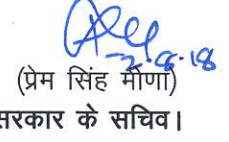 2.8.18
(प्रेम सिंह मीणा)
सरकार के सचिव।